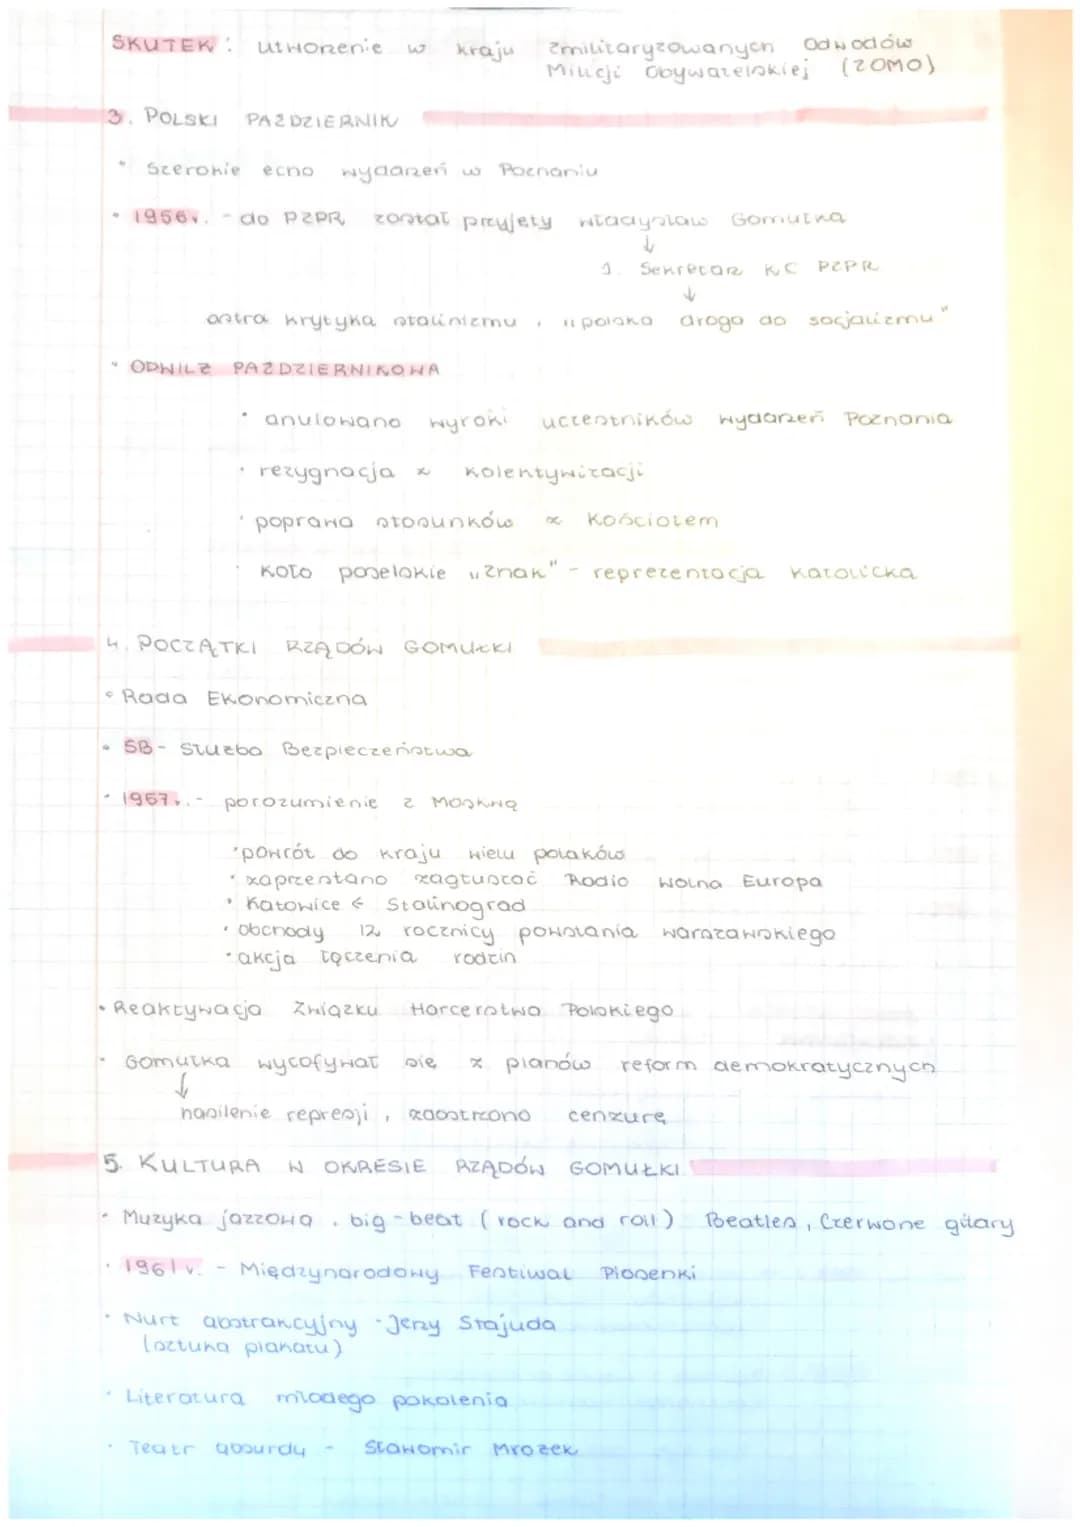 SKUTEK: utworzenie w kraju zmilitaryzowanych Odwodów
Milicji Obywatelskiej (ZOMO)
3. POLSKI PAŹDZIERNIK
• Szerokie echo wydarzeń w Poznaniu
• 1956r. - do PZPR został przyjęty Władysław Gomułka
↓
1. Sekretarz KC PZPR
↓
ostra krytyka stalinizmu, „polska droga do socjalizmu"
• ODWILŻ PAŹDZIERNIKOWA
• anulowano wyroki uczestników wydarzeń Poznania
• rezygnacja z kolektywizacji
• poprawa stosunków z Kościołem
• Koło poselskie „Znak" - reprezentacja katolicka
4. POCZĄTKI RZĄDÓW GOMUŁKI
• Rada Ekonomiczna
• SB - Służba Bezpieczeństwa
• 1957r. - porozumienie z Moskwą
• powrót do kraju wielu polaków
• zaprzestano zagłuszać Radio Wolna Europa
• Katowice ← Stalinograd
• obchody 12 rocznicy powstania warszawskiego
• akcja łączenia rodzin
• Reaktywacja Związku Harcerstwa Polskiego
• Gomułka wycofywał się z planów reform demokratycznych
↓
nasilenie represji, zaostrzono cenzurę
5. KULTURA W OKRESIE RZĄDÓW GOMUŁKI
• Muzyka jazzowa, big-beat (rock and roll) Beatles, Czerwone gitary
• 1961r. - Międzynarodowy Festiwal Piosenki
• Nurt abstrakcyjny - Jerzy Stajuda
(sztuka plakatu)
• Literatura młodego pokolenia
• Teatr absurdu - Sławomir Mrożek